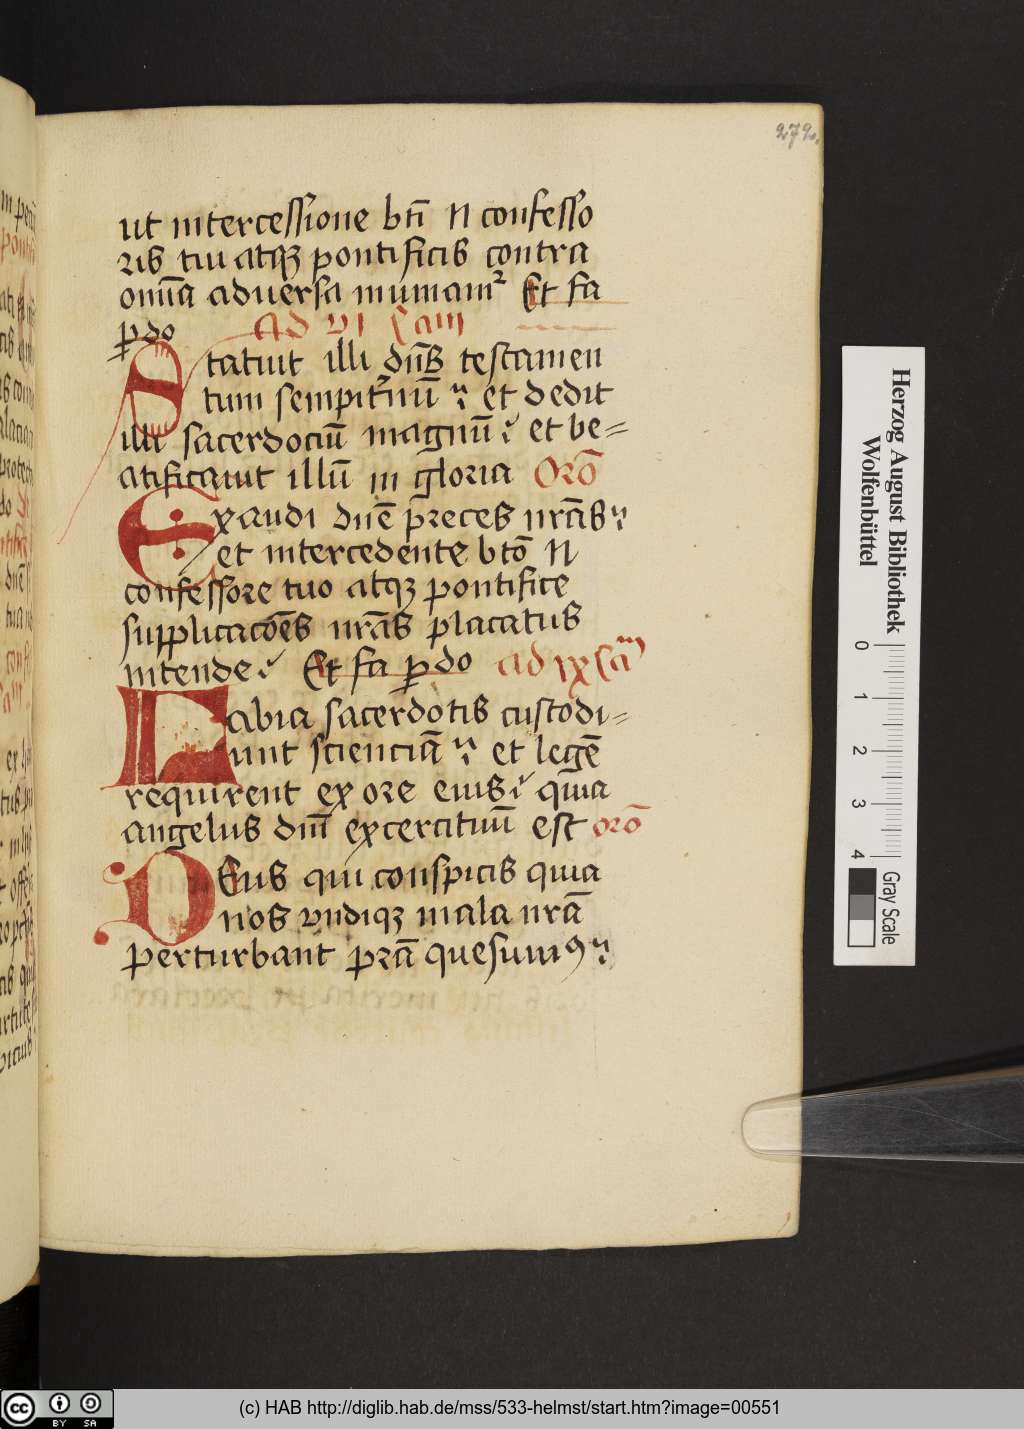 272.
ut intercessione btī N confesso
ris tui atqꝫ pontificis contra
om̄ia aduersa muniamᷣ Et fa
ꝑdo Ad VI Cam
Statuit illi dn̄s testamen
tum sempit̾nū et dedit
illi sacerdociū magnū et be=
atificauit illū in gloria Orō
Exaudi dn̄e preces nrās
et intercedente btō N
confessore tuo atqꝫ pontifice
supplicacōes nrās placatus
intende Et fa ꝑdo ad IX Cam
Labia sacerdotis custodi=
unt scienciā et legē
requirent ex ore eius quia
angelus dnī excercituū est orō
Deus qui conspicis quia
nos vndiqꝫ mala nrā
perturbant prā quesumꝰ
Herzog August Bibliothek
Wolfenbüttel
0 1 2 3 4
Gray Scale
(c) HAB http://diglib.hab.de/mss/533-helmst/start.htm?image=00551
cc BY SA